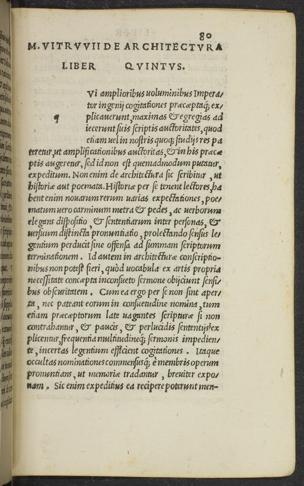 80
M. VITRVVII DE ARCHITECTVRA
LIBER QVINTVS.
q
Vi amplioribus uoluminibus Impera-
tor ingenij cogitationes præceptaq́; ex-
plicauerunt, maximas & egregias ad
iecerunt suis scriptis auctoritates, quod
etiam uel in nostris quoq; studijs res pa
teretur, ut amplificationibus auctoritas, & in his præce
ptis augeretur, sed id non est quemadmodum putatur,
expeditum. Non enim de architectura sic scribitur, ut
historiæ aut poemata. Historiæ per se tenent lectores, ha
bent enim nouarum rerum uarias expectationes, poe-
matum uero carminum metra & pedes, ac uerborum
elegans dispositio, & sententiarum inter personas, &
uersuum distincta pronuntiatio, prolectando sensus le
gentium perducit sine offensa ad summam scriptorum
terminationem. Id autem in architecturæ conscriptio-
nibus non potest fieri, quòd uocabula ex artis propria
necessitate concepta inconsueto sermone obijciunt sensi
bus obscuritatem. Cum ea ergo per se non sint aper
ta, nec pateant eorum in consuetudine nomina, tum
etiam præceptorum late uagantes scripturæ si non
contrahantur, & paucis, & perlucidis sententijs ex
plicentur, frequentia multitudineq́; sermonis impedien
te, incertas legentium efficient cogitationes. Itaque
occultas nominationes commensusq́; è membris operum
pronuntians, ut memoriæ tradantur, breuiter expo-
nam. Sic enim expeditius ea recipere poterunt men-